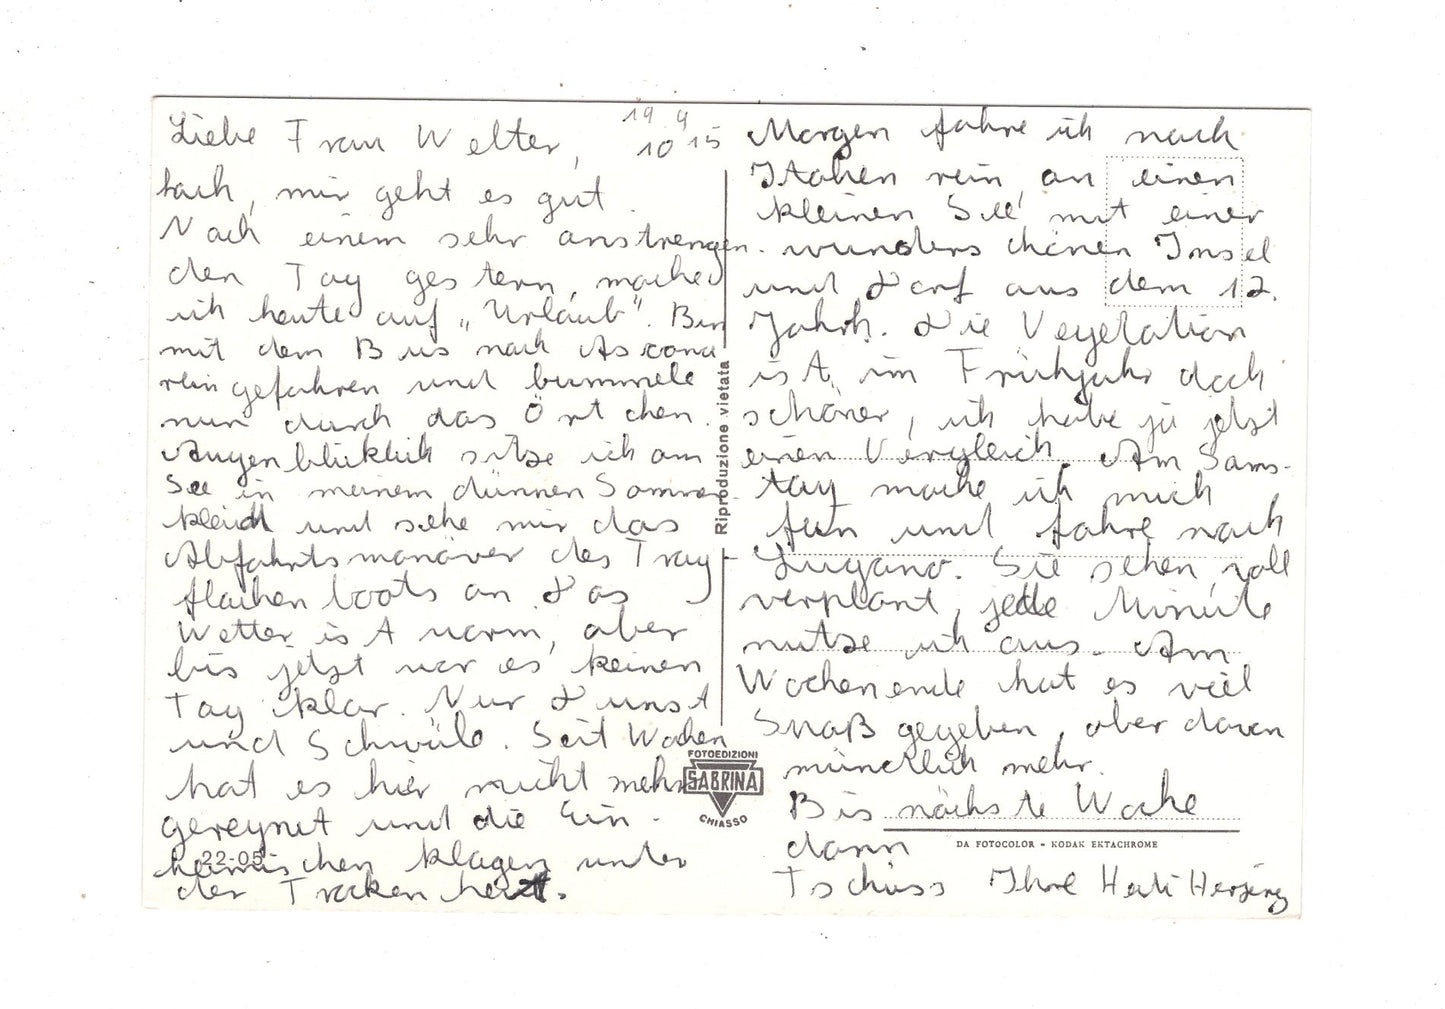 Liebe Frau Welter,
19 4
10 15
hach, mir geht es gut.
Nach einem sehr anstrengen-
den Tag gestern, mache
ich heute auf „Urlaub“. Bin
mit dem Bus nach Ascona
reingefahren und bummele
nun durch das Örtchen.
Augenblicklich sitze ich am
See in meinem dünnen Sommer-
kleid und sehe mir das
Abfahrtsmanöver des Trag-
flächenboots an. Das
Wetter ist warm, aber
bis jetzt war es keinen
Tag klar. Nur Dunst
und Schwüle. Seit Wochen
hat es hier nicht mehr
geregnet und die Ein-
heimischen klagen unter
der Trockenheit.
22-05-
Riproduzione vietata
FOTOEDIZIONI
SABRINA
CHIASSO
Morgen fahre ich nach
Italien rein, an einen
kleinen See mit einer
wunderschönen Insel
und Dorf aus dem 12.
Jahrh. Die Vegetation
ist im Frühjahr doch
schöner, ich habe ja jetzt
einen Vergleich. Am Sams-
tag mache ich mich
fein und fahre nach
Lugano. Sie sehen, voll
verplant, jede Minute
nutze ich aus. Am
Wochenende hat es viel
Spaß gegeben, aber davon
mündlich mehr.
Bis nächste Woche
dann
DA FOTOCOLOR - KODAK EKTACHROME
Tschüss Ihre